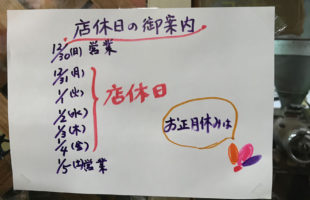 店休日の御案内
12/30(日)営業
12/31(月)
1/1(火)
1/2(水)
1/3(木)
1/4(金)
店休日
1/5(土)営業
お正月休みは